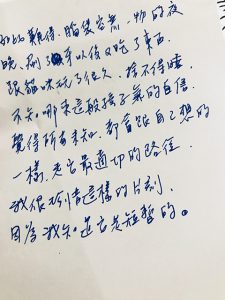 如此難得、脆弱容易、物的夜
晚、刷了牙以後又吃了東西、
跟貓咪玩了很久、捨不得睡、
不知哪來這般孩子氣的自信、
覺得所有未知、都會跟自己想的
一樣、走在最適切的路徑、
我很珍惜這樣的片刻、
因為我知道它是短暫的。